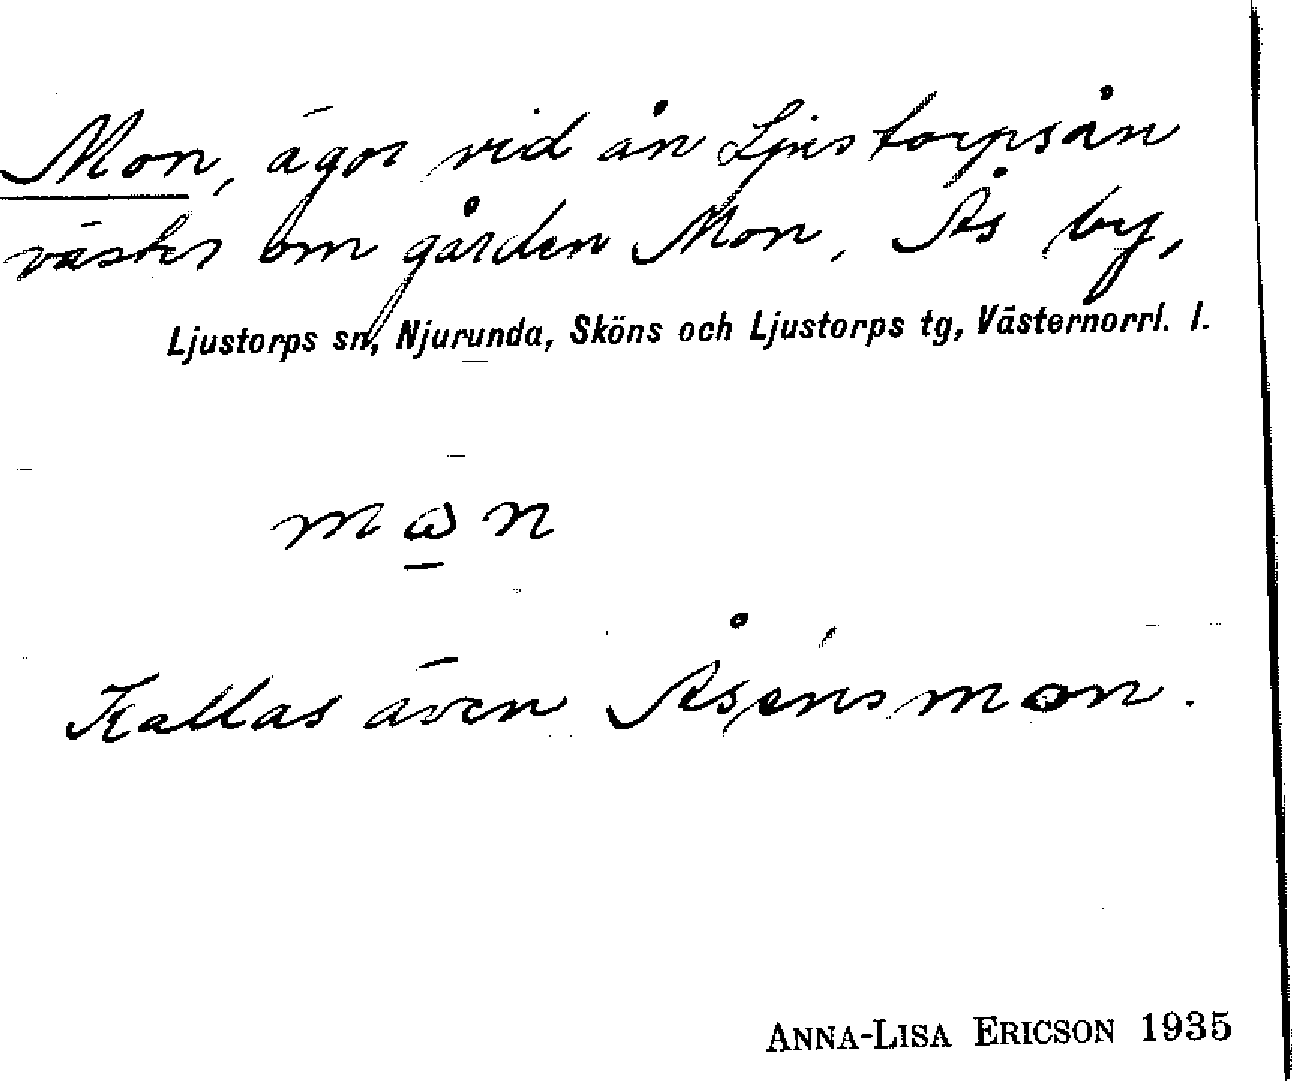 Mon, ägor vid ån Ljustorpsån
väster om gården Mon, Ås by,
Ljustorps sn, Njurunda, Sköns och Ljustorps tg, Västernorrl. l.
mωn
Kallas även Åsénsmon.
ANNA-LISA ERICSON 1935